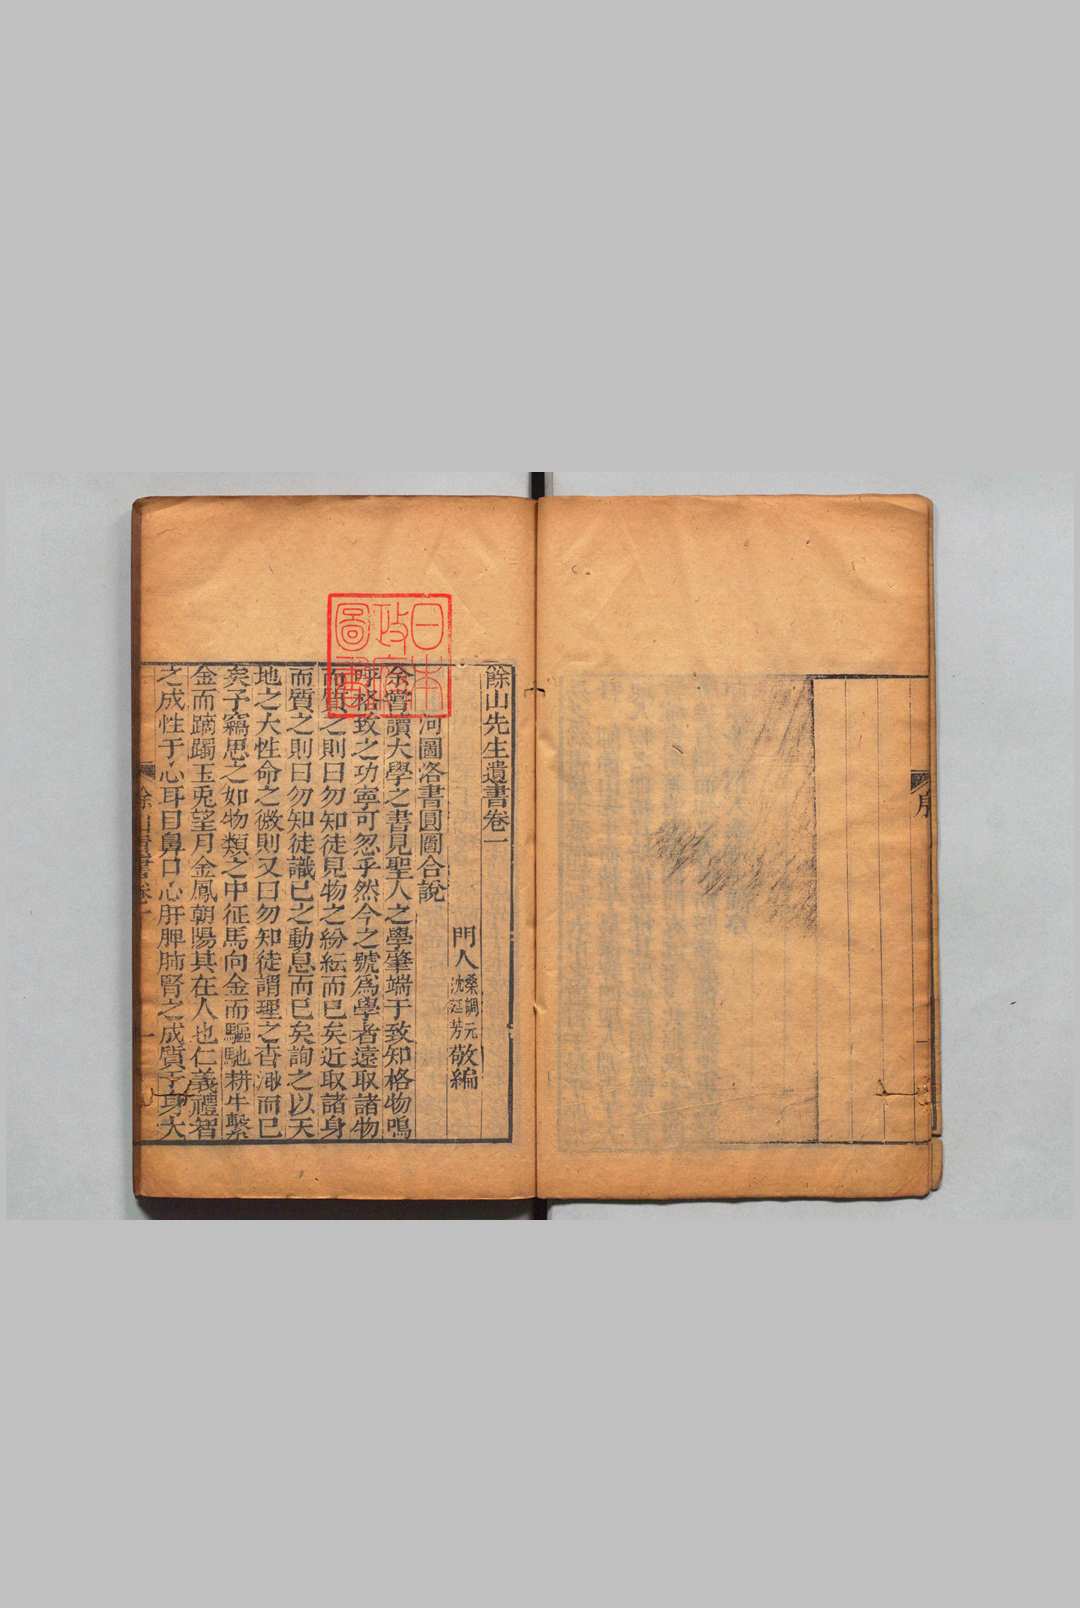 序
餘山先生遺書卷一
門人桑調元沈廷芳敬編
河圖洛書圓圖合說
余嘗讀大學之書見聖人之學肇端于致知格物嗚
呼格致之功寧可忽乎然今之號爲學者遠取諸物
而質之則曰勿知徒見物之紛紜而已矣近取諸身
而質之則曰勿知徒識已之動息而已矣詢之以天
地之大性命之微則又曰勿知徒謂理之杳渺而已
矣予竊思之如物類之中征馬向金而驅馳耕牛繫
金而蹢躅玉兎望月金鳳朝陽其在人也仁義禮智
之成性于心耳目鼻口心肝脾肺腎之成質于身大
餘山遺書卷一
一
日本政府圖書